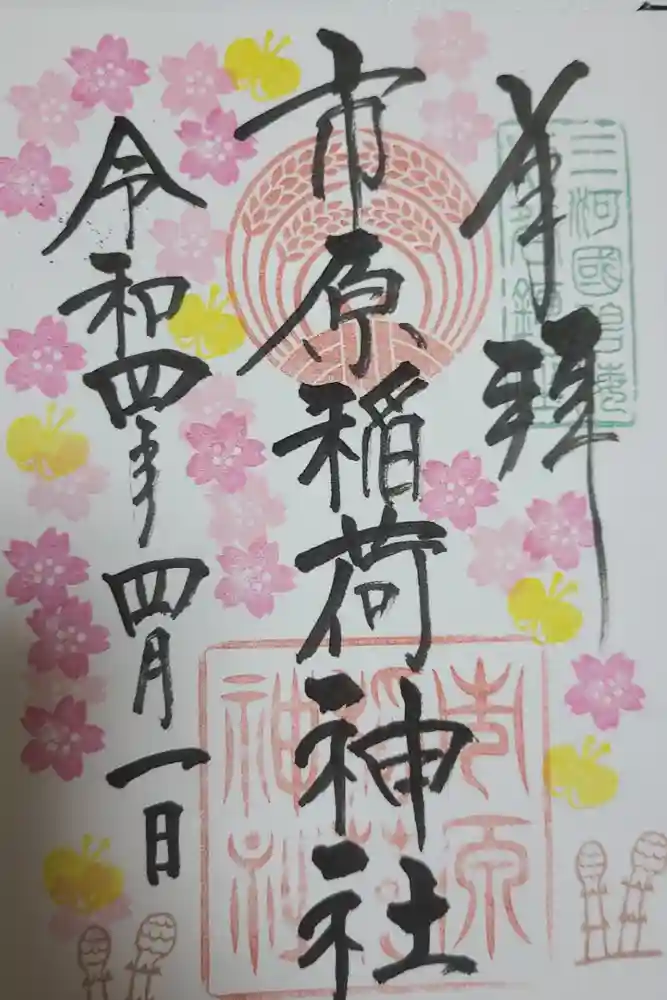 奉拝
三河國碧海
市原稲荷神社
市原
稲荷
神社
令和四年四月一日